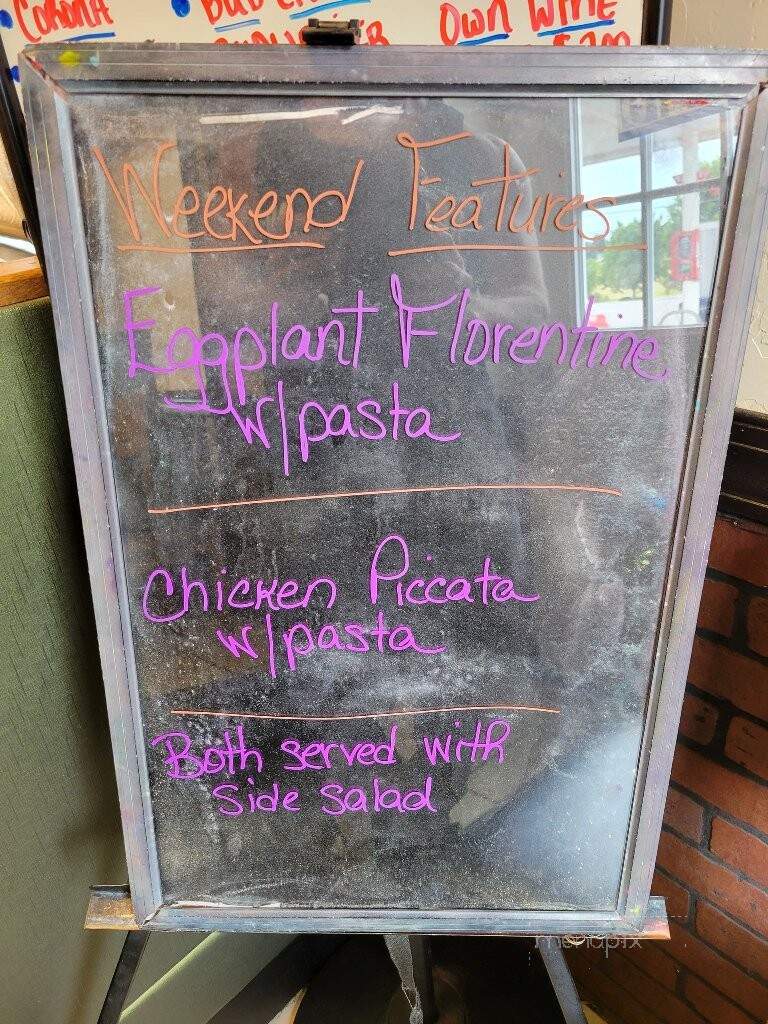 Corona
Own Wine
Weekend Features
Eggplant Florentine
w/pasta
Chicken Piccata
w/pasta
Both served with
side salad
menupix